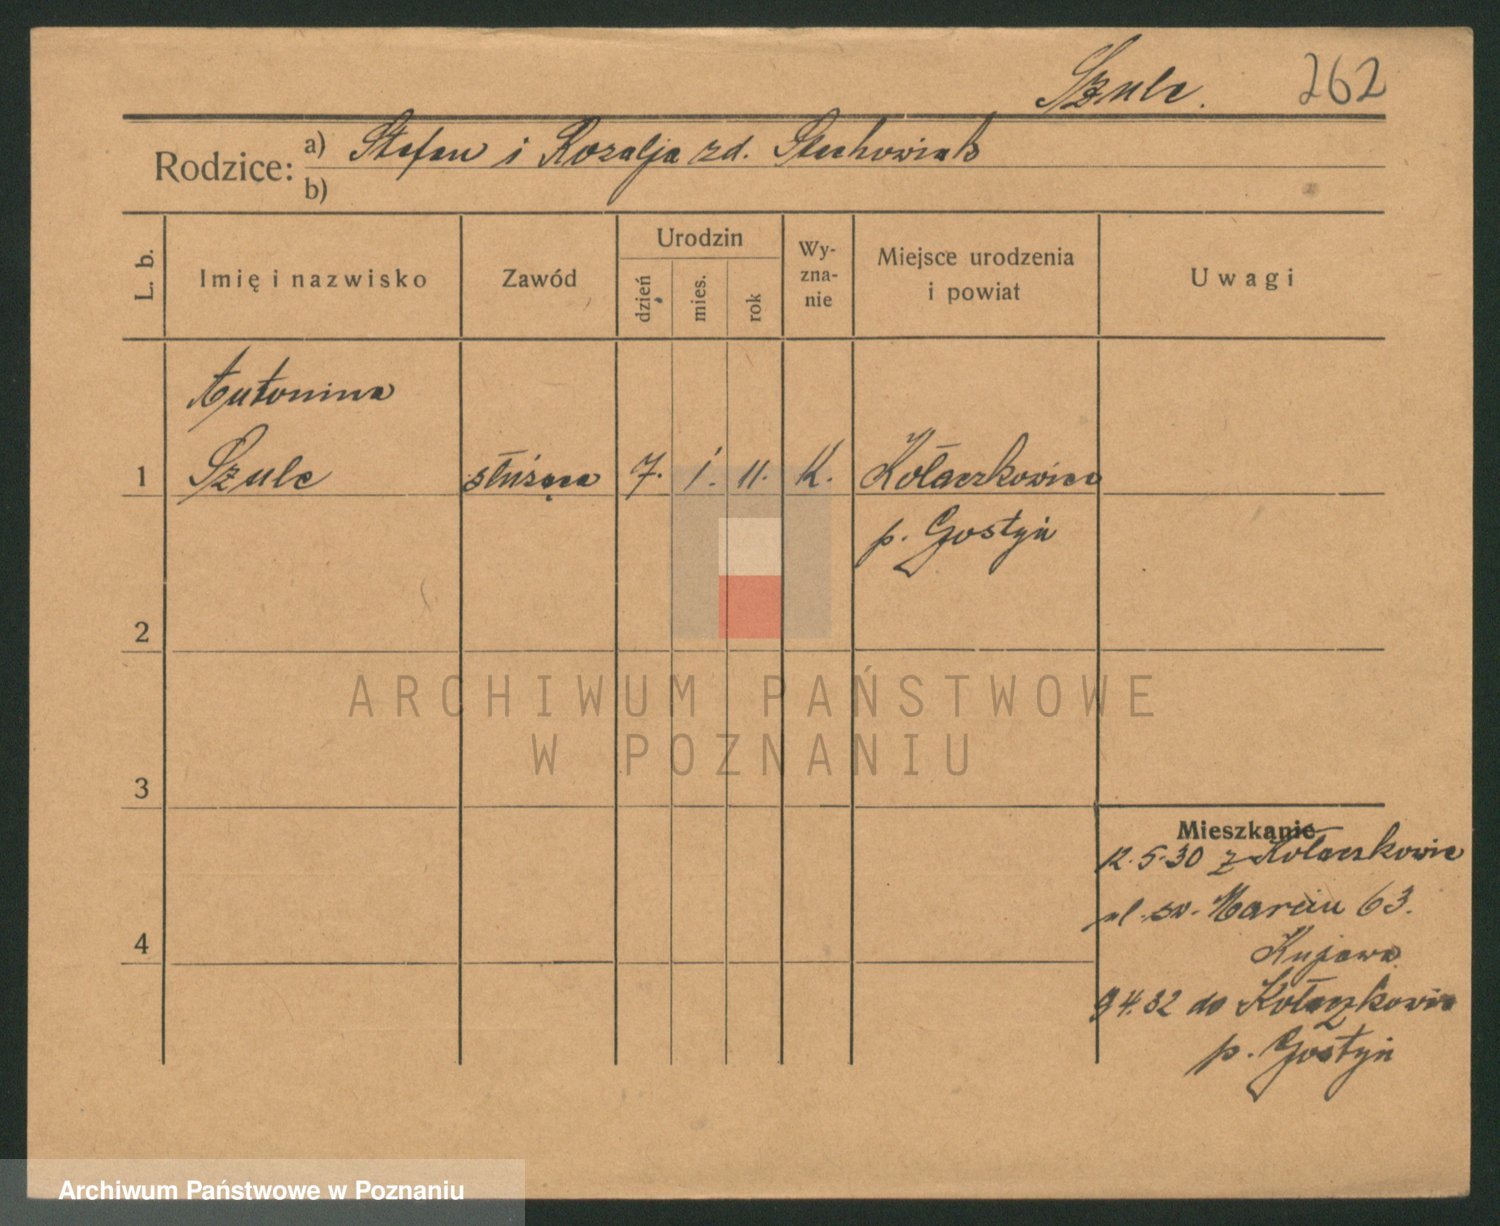 Szulc. 262
Rodzice: a) Stefan i Rozalja zd. Stachowiak
b)
L. b. Imię i nazwisko Zawód Urodzin dzień mies. rok Wyznanie Miejsce urodzenia i powiat Uwagi
Antonina
1 Szulc służąca 7. 1. 11. K. Kołaczkowice
p. Gostyń
2
3
Mieszkanie
12.5.30 z Kołaczkowic
ul. św. Marcin 63.
4
Kujawa
9 4.32 do Kołaczkowic
p. Gostyń
ARCHIWUM PAŃSTWOWE
W POZNANIU
Archiwum Państwowe w Poznaniu